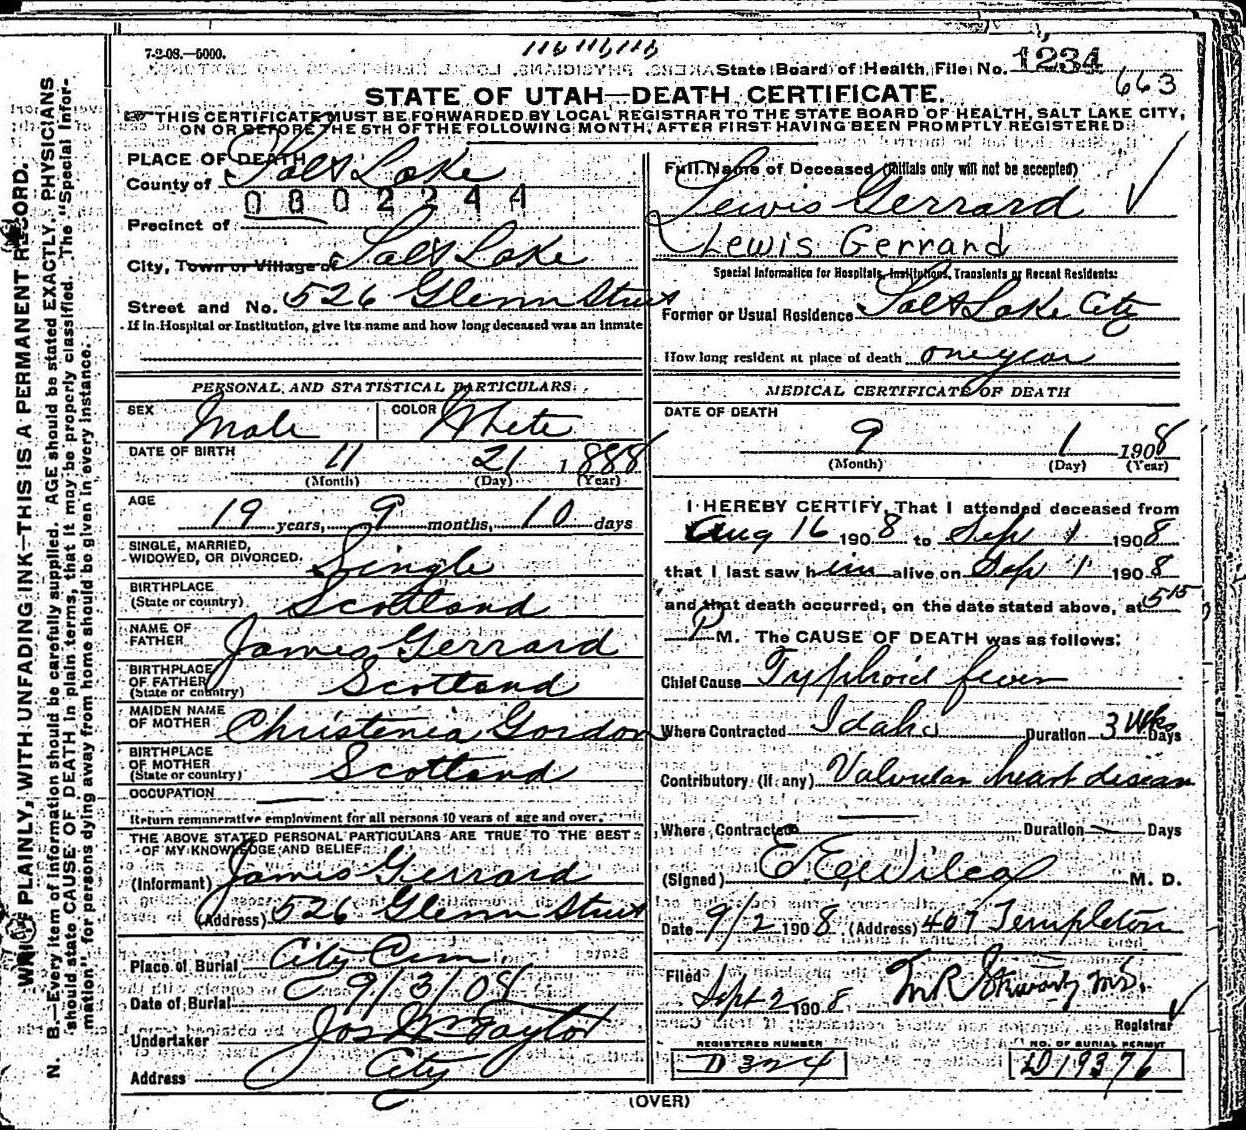 7-2-08.—5000.
State Board of Health, File No. 1234
663
STATE OF UTAH—DEATH CERTIFICATE.
THIS CERTIFICATE MUST BE FORWARDED BY LOCAL REGISTRAR TO THE STATE BOARD OF HEALTH, SALT LAKE CITY,
ON OR BEFORE THE 5TH OF THE FOLLOWING MONTH, AFTER FIRST HAVING BEEN PROMPTLY REGISTERED.
PLACE OF DEATH
County of Salt Lake
0802244
Precinct of
City, Town or Village of Salt Lake
Street and No. 526 Glenn Street
If in Hospital or Institution, give its name and how long deceased was an inmate
Full Name of Deceased (Initials only will not be accepted)
Lewis Gerrard
Lewis Gerrand
Special Information for Hospitals, Institutions, Transients or Recent Residents:
Former or Usual Residence Salt Lake City
How long resident at place of death one year
PERSONAL AND STATISTICAL PARTICULARS.
SEX Male COLOR White
DATE OF BIRTH 11 21 1888
(Month) (Day) (Year)
AGE 19 years, 9 months, 10 days
SINGLE, MARRIED,
WIDOWED, OR DIVORCED. Single
BIRTHPLACE
(State or country) Scotland
NAME OF
FATHER James Gerrard
BIRTHPLACE
OF FATHER
(State or country) Scotland
MAIDEN NAME
OF MOTHER Christenia Gordon
BIRTHPLACE
OF MOTHER
(State or country) Scotland
OCCUPATION
Return remunerative employment for all persons 10 years of age and over.
THE ABOVE STATED PERSONAL PARTICULARS ARE TRUE TO THE BEST
OF MY KNOWLEDGE AND BELIEF.
(Informant) James Gerrard
(Address) 526 Glenn Street
Place of Burial City Cem
Date of Burial 9/3/08
Undertaker Jos Wm Taylor
Address City
MEDICAL CERTIFICATE OF DEATH
DATE OF DEATH
9 1 1908
(Month) (Day) (Year)
I HEREBY CERTIFY, That I attended deceased from
Aug 16 1908 to Sep 1 1908
that I last saw him alive on Sep 1 1908
and that death occurred, on the date stated above, at 5 15
P M. The CAUSE OF DEATH was as follows:
Chief Cause Typhoid fever
Where Contracted Idaho Duration 3 Wks Days
Contributory (if any) Valvular heart disease
Where Contracted Duration Days
(Signed) E. E. Wilcox M. D.
Date 9/2 1908 (Address) 407 Templeton
Filed
Sept 2 1908 M.D.
Registrar
REGISTERED NUMBER
D 324
NO. OF BURIAL PERMIT
D19376
(OVER)
WRITE PLAINLY, WITH UNFADING INK—THIS IS A PERMANENT RECORD.
N. B.—Every item of information should be carefully supplied. AGE should be stated EXACTLY. PHYSICIANS
should state CAUSE OF DEATH in plain terms, that it may be properly classified. The "Special Infor-
mation" for persons dying away from home should be given in every instance.